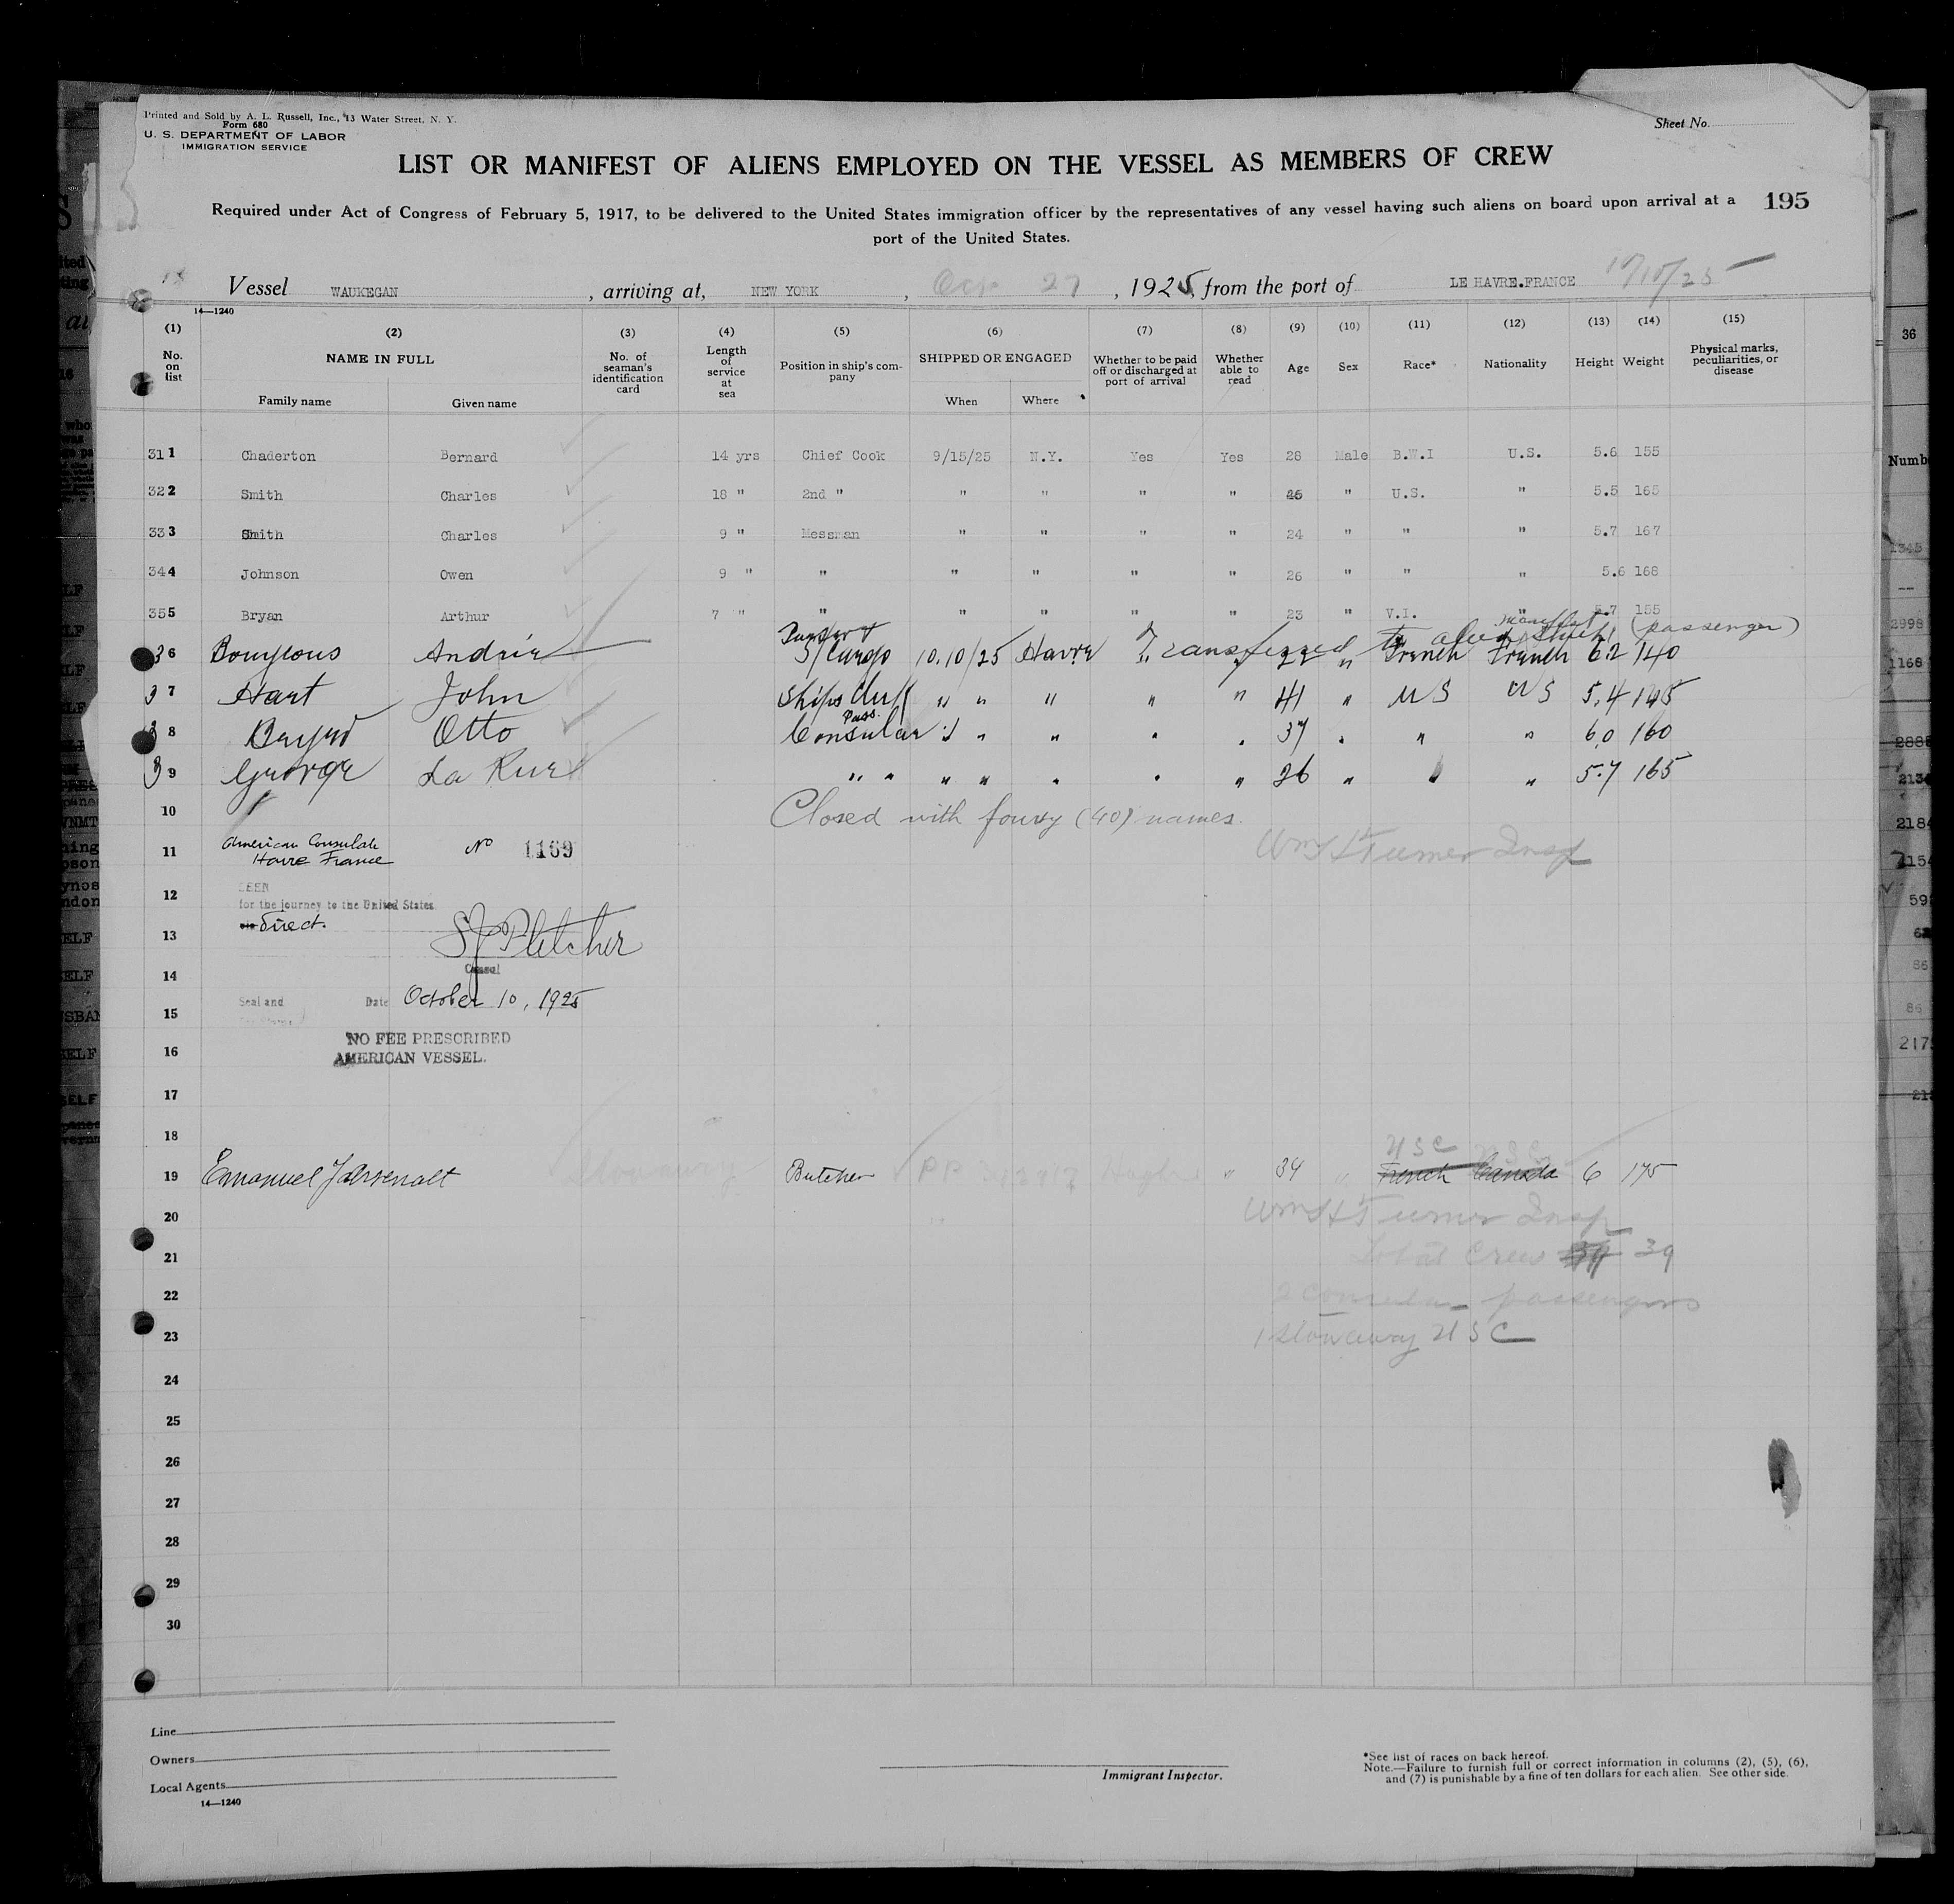 Printed and Sold by A. L. Russell, Inc., 43 Water Street, N. Y.
Form 680
U. S. DEPARTMENT OF LABOR
IMMIGRATION SERVICE
Sheet No.
LIST OR MANIFEST OF ALIENS EMPLOYED ON THE VESSEL AS MEMBERS OF CREW
195
Required under Act of Congress of February 5, 1917, to be delivered to the United States immigration officer by the representatives of any vessel having such aliens on board upon arrival at a
port of the United States.
Vessel WAUKEGAN, arriving at, NEW YORK, Oct 27, 1925, from the port of LE HAVRE.FRANCE 10/10/25
14—1240
(1) (2) (3) (4) (5) (6) (7) (8) (9) (10) (11) (12) (13) (14) (15)
No. on list
NAME IN FULL
Family name Given name
No. of seaman's identification card
Length of service at sea
Position in ship's company
SHIPPED OR ENGAGED
When Where
Whether to be paid off or discharged at port of arrival
Whether able to read
Age Sex Race* Nationality Height Weight
Physical marks, peculiarities, or disease
31 1 Chaderton Bernard 14 yrs Chief Cook 9/15/25 N.Y. Yes Yes 28 Male B.W.I U.S. 5.6 155
32 2 Smith Charles 18 " 2nd " " " " " " U.S. " 5.5 165
33 3 Smith Charles 9 " Messman " " " " 24 " " " 5.7 167
34 4 Johnson Owen 9 " " " " " " 26 " " " 5.6 168
35 5 Bryan Arthur 7 " " " " " " 23 " V.I. " 5.7 155
Transferred to alien (passenger)
36 Andrie S/Cargo 10.10/25 Havre " " 22 " French French 6.2 140
37 Hart John Ships " " " " " 41 " US US 5.4 145
Pass.
38 Otto Consular " " " " " 37 " " " 6.0 160
39 George La Rue " " " " " " " 26 " " " 5.7 165
10 Closed with fourty (40) names.
11 American Consulate
Havre France
No 1169
Wm H Turner Insp
12 SEEN
for the journey to the United States
Direct.
13 S J Fletcher
14 Consul
Seal and Date October 10, 1925
15
NO FEE PRESCRIBED
16 AMERICAN VESSEL.
17
18
USC
19 Emanuel J Arsenalt Stowaway Butcher " 34 " French Canada 6 175
20 Wm H Turner Insp
21 Total Crew 39
22 2 Consular passengers
23 1 Stowaway USC
24
25
26
27
28
29
30
Line
Owners
Local Agents
14—1240
Immigrant Inspector.
*See list of races on back hereof.
Note.—Failure to furnish full or correct information in columns (2), (5), (6),
and (7) is punishable by a fine of ten dollars for each alien. See other side.